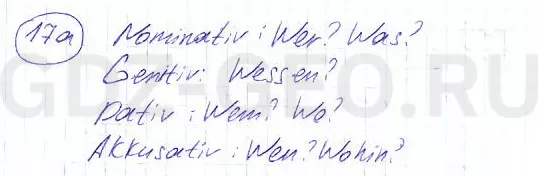 17a Nominativ: Wer? Was?
Genitiv: Wessen?
Dativ: Wem? Wo?
Akkusativ: Wen? Wohin?
GDZ-GEO.RU